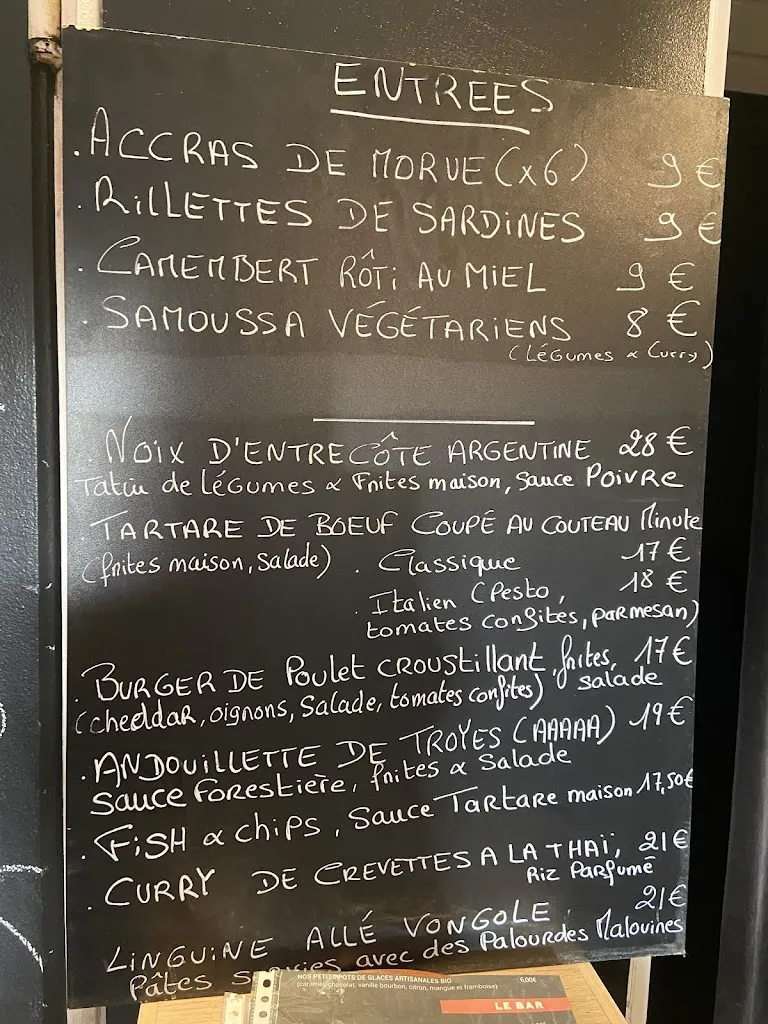 ENTRÉES
. ACCRAS DE MORUE (x6) 9 €
. RiLLETTES DE SARDiNES 9 €
. CAMEMBERT RÔTi AU MiEL 9 €
. SAMOUSSA VÉGÉTARIENS 8 €
(LéGumes & Curry)
. Noix D'ENTRECÔTE ARGENTINE 28 €
Tatin de LéGUMES & Frites maison, Sauce POIVRE
. TARTARE DE BOEUF COUPÉ AU COUTEAU Minute
(frites maison, Salade) . Classique 17 €
. Italien (Pesto, 18 €
tomates confites, parmesan)
. BURGER DE Poulet CROUStillant, frites, 17 €
(cheddar, oignons, Salade, tomates confites) salade
. ANDOUiLLETTE DE TROYES (AAAAA) 19 €
Sauce Forestière, frites & Salade
. FiSH & chips, Sauce Tartare maison 17,50€
. CURRY DE CREVETTES A LA THAÏ, 21€
Riz Parfumé
LiNGUiNE ALLÉ VONGOLE 21€
Pâtes avec des Palourdes Malouines
NOS PETITS POTS DE GLACES ARTISANALES BIO 5,00€
(caramel, chocolat, vanille bourbon, citron, mangue et framboise)
LE BAR